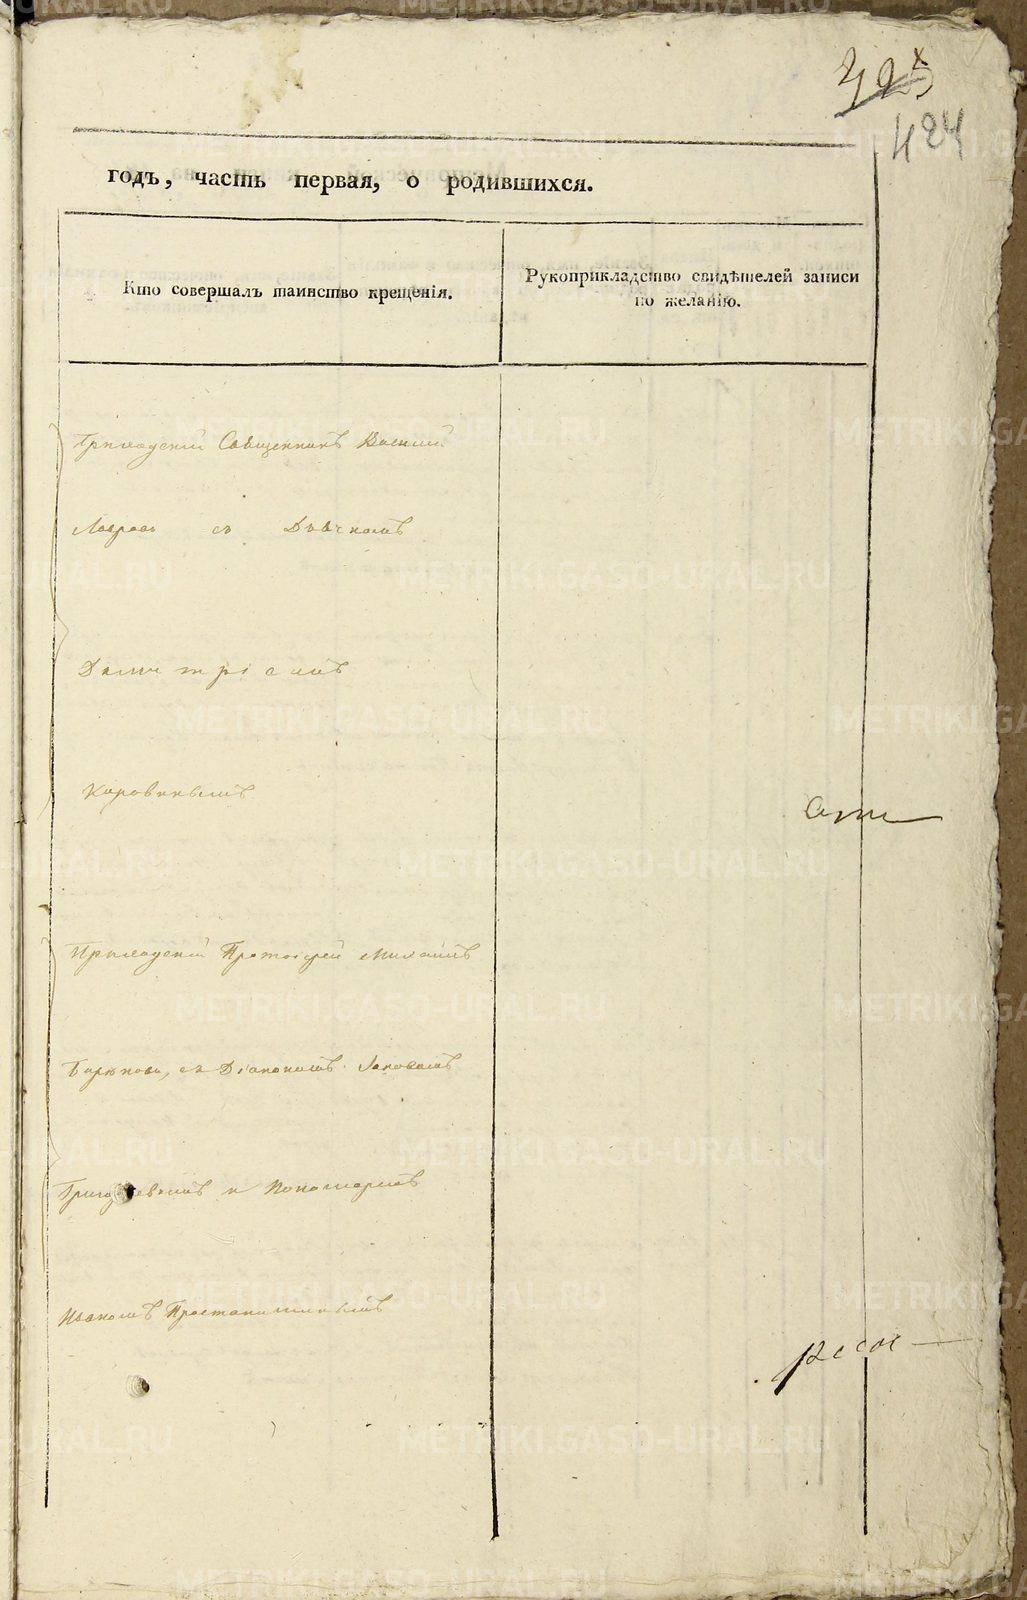 423
424
годъ, часть первая, о родившихся.
Кто совершалъ таинство крещенія.
Рукоприкладство свидѣтелей записи
по желанію.
Приходскій Священникъ Василій
Лавровъ съ Дьячкомъ
Димитріемъ
Коровинымъ
Приходскій Протоіерей Михаилъ
Бирюковъ, съ Діакономъ Іаковомъ
и Пономаремъ
Иваномъ
METRIKI.GASO-URAL.RU